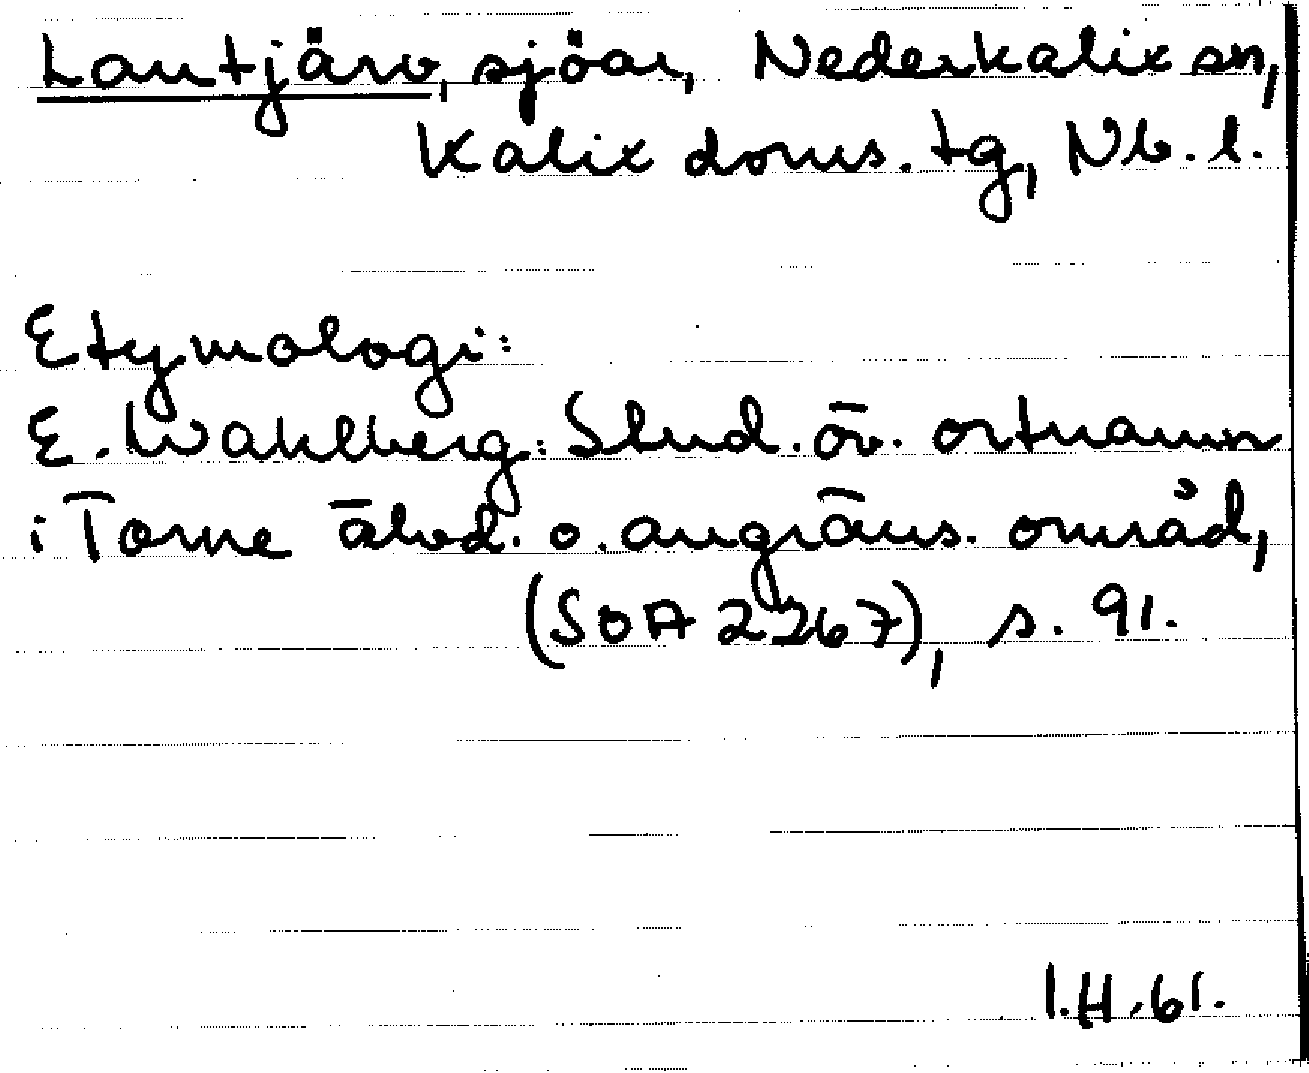 Lantjärv, sjöar, Nederkalix sn,
Kalix doms. tg, Nb. l.
Etymologi:
E. Wahlberg: Stud. öv. ortnamn
i Torne älvd. o. angräns. områd,
(SOA 2267), s. 91.
I.H. 61.